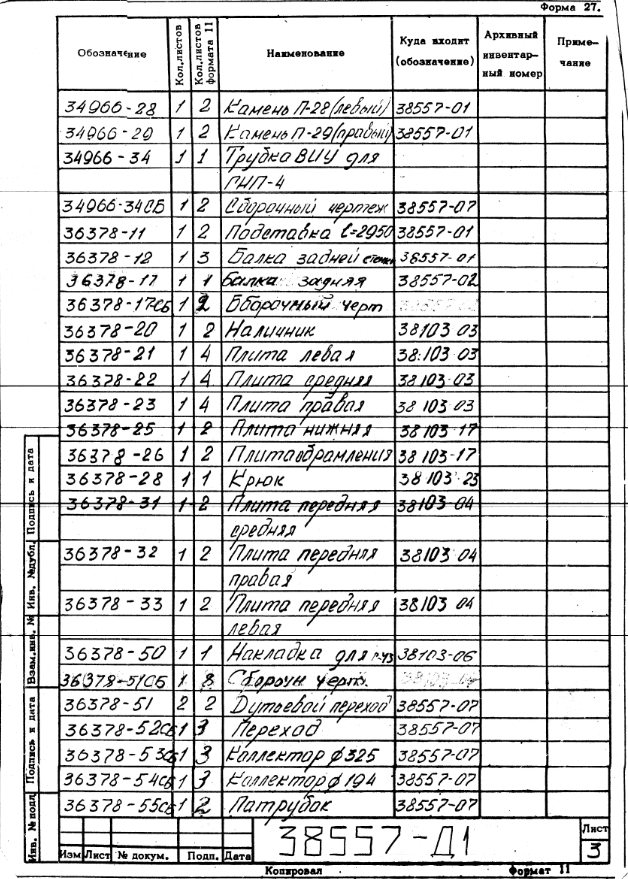 Форма 27.
Обозначение Кол.листов Кол.листов формата 11 Наименование Куда входит (обозначение) Архивный инвентарный номер Примечание
34966-28 1 2 Камень П-28(левый) 38557-01
34966-29 1 2 Камень П-29(правый) 38557-01
34966-34 1 1 Трубка ВИУ для
ГНП-4
34966-34СБ 1 2 Сборочный чертеж 38557-07
36378-11 1 2 Подставка l=2950 38557-01
36378-12 1 3 Балка задней стенки 38557-01
36378-17 1 1 Балка задняя 38557-02
36378-17СБ 1 2 Сборочный черт
36378-20 1 2 Наличник 38103-03
36378-21 1 4 Плита левая 38103-03
36378-22 1 4 Плита средняя 38103-03
36378-23 1 4 Плита правая 38103-03
36378-25 1 2 Плита нижняя 38103-17
36378-26 1 2 Плита обрамления 38103-17
36378-28 1 1 Крюк 38103-23
36378-31 1 2 Плита передняя 38103-04
средняя
36378-32 1 2 Плита передняя 38103-04
правая
36378-33 1 2 Плита передняя 38103-04
левая
36378-50 1 1 Накладка для 38103-06
36378-51СБ 1 8 Сбороун черт.
36378-51 2 2 Дутьевой переход 38557-07
36378-52СБ 1 3 Переход 38557-07
36378-53СБ 1 3 Коллектор ϕ325 38557-07
36378-54СБ 1 3 Коллектор ϕ194 38557-07
36378-55СБ 1 2 Патрубок 38557-07
Подпись и дата
Инв. №дубл.
Взам.инв. №
Подпись и дата
Инв. № подл
Изм Лист № докум. Подп. Дата
38557-Д1
Лист
3
Копировал Формат 11